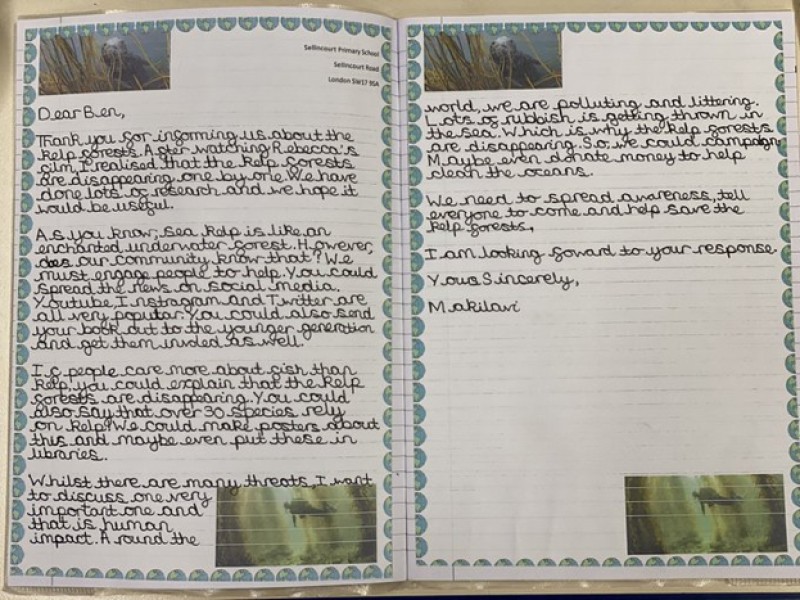 Sellincourt Primary School
Sellincourt Road
London SW17 9SA
Dear Ben,
Thank you for informing us about the
kelp forests. After watching Rebecca's
film, I realised that the kelp forests
are disappearing one by one. We have
done lots of research and we hope it
would be useful.
As you know, sea kelp is like an
enchanted underwater forest. However,
does our community know that? We
must engage people to help. You could
spread the news on social media.
Youtube, Instragram and Twitter are
all very popular. You could also send
your book out to the younger generation
and get them involed as well.
If people care more about fish than
kelp, you could explain that the kelp
forests are disappearing. You could
also say that over 30 species rely
on kelp! We could make posters about
this and maybe even put these in
libraries.
Whilst there are many threats, I want
to discuss one very
important one and
that is human
impact. Around the
world, we are polluting and littering.
Lots of rubbish is getting thrown in
the sea. Which is why the kelp forests
are disappearing. So, we could campaign.
Maybe even donate money to help
clean the oceans.
We need to spread awareness, tell
everyone to come and help save the
kelp forests.
I am looking foward to your response.
Yous Sincerely,
Makilavi